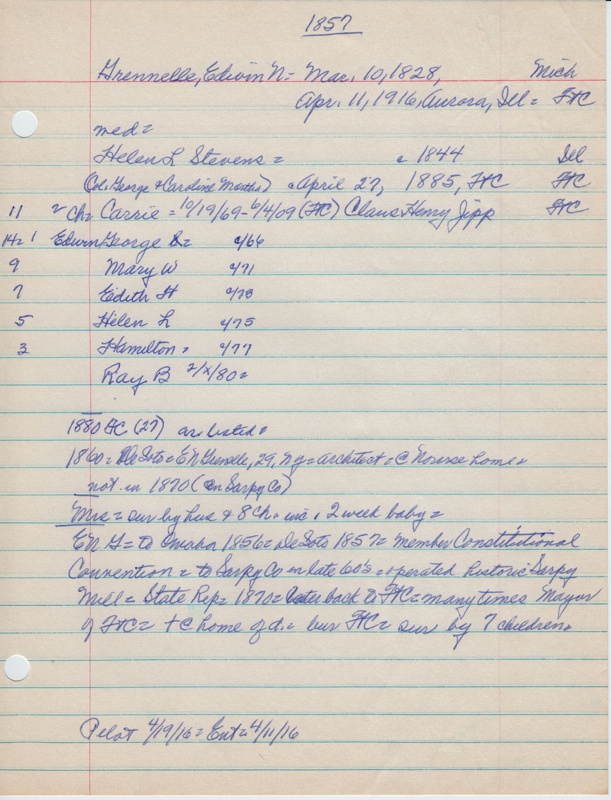 1857
Grennelle, Edwin N = Mar. 10, 1828, Mich
Apr. 11, 1916, Aurora, Ill = FtC
med =
Helen L Stevens = c 1844 Ill
(Col. George & Caroline ) April 27, 1885, FtC FtC
11 = ch = Carrie = 10/19/69 - 6/4/09 (FtC) Claus Henry Jipp FtC
14 = 1 Edwin George S = c/66
9 Mary W c/71
7 Edith H c/73
5 Helen L c/75
3 Hamilton = c/77
Ray B 2/x/80 =
1880 FC (27) are listed =
1860 = DeSoto = E N Grenelle, 29, Ny = architect = @ Nourse home =
not in 1870 (in Sarpy Co)
Mrs = sur by hus & 8 ch. inc. 2 week baby =
E N G = to Omaha 1856 = DeSoto 1857 = member Constitutional
Convention = to Sarpy Co in late 60's = operated historic Sarpy
Mill = State Rep = 1870 = later back to FtC = many times Mayor
of FtC = + @ home of d. = bur FtC = sur by 7 children.
Pilot 4/19/16 = Ent = 4/11/16